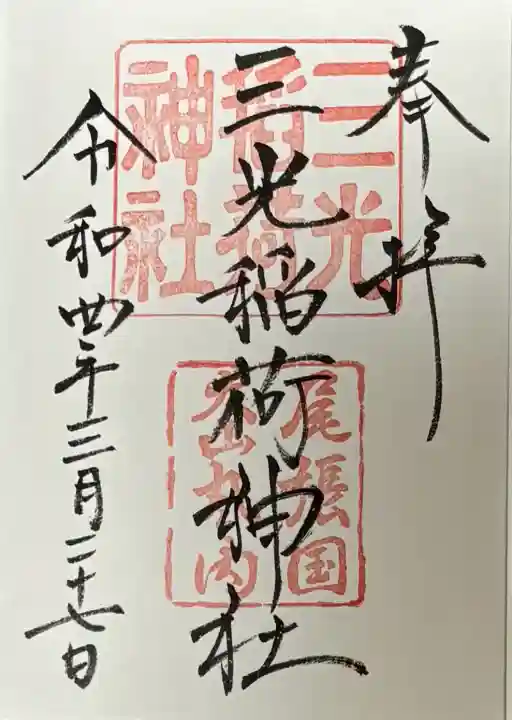 奉拝
三光稲荷神社
令和四年三月二十七日
三光
稲荷
神社
尾張国
丸内